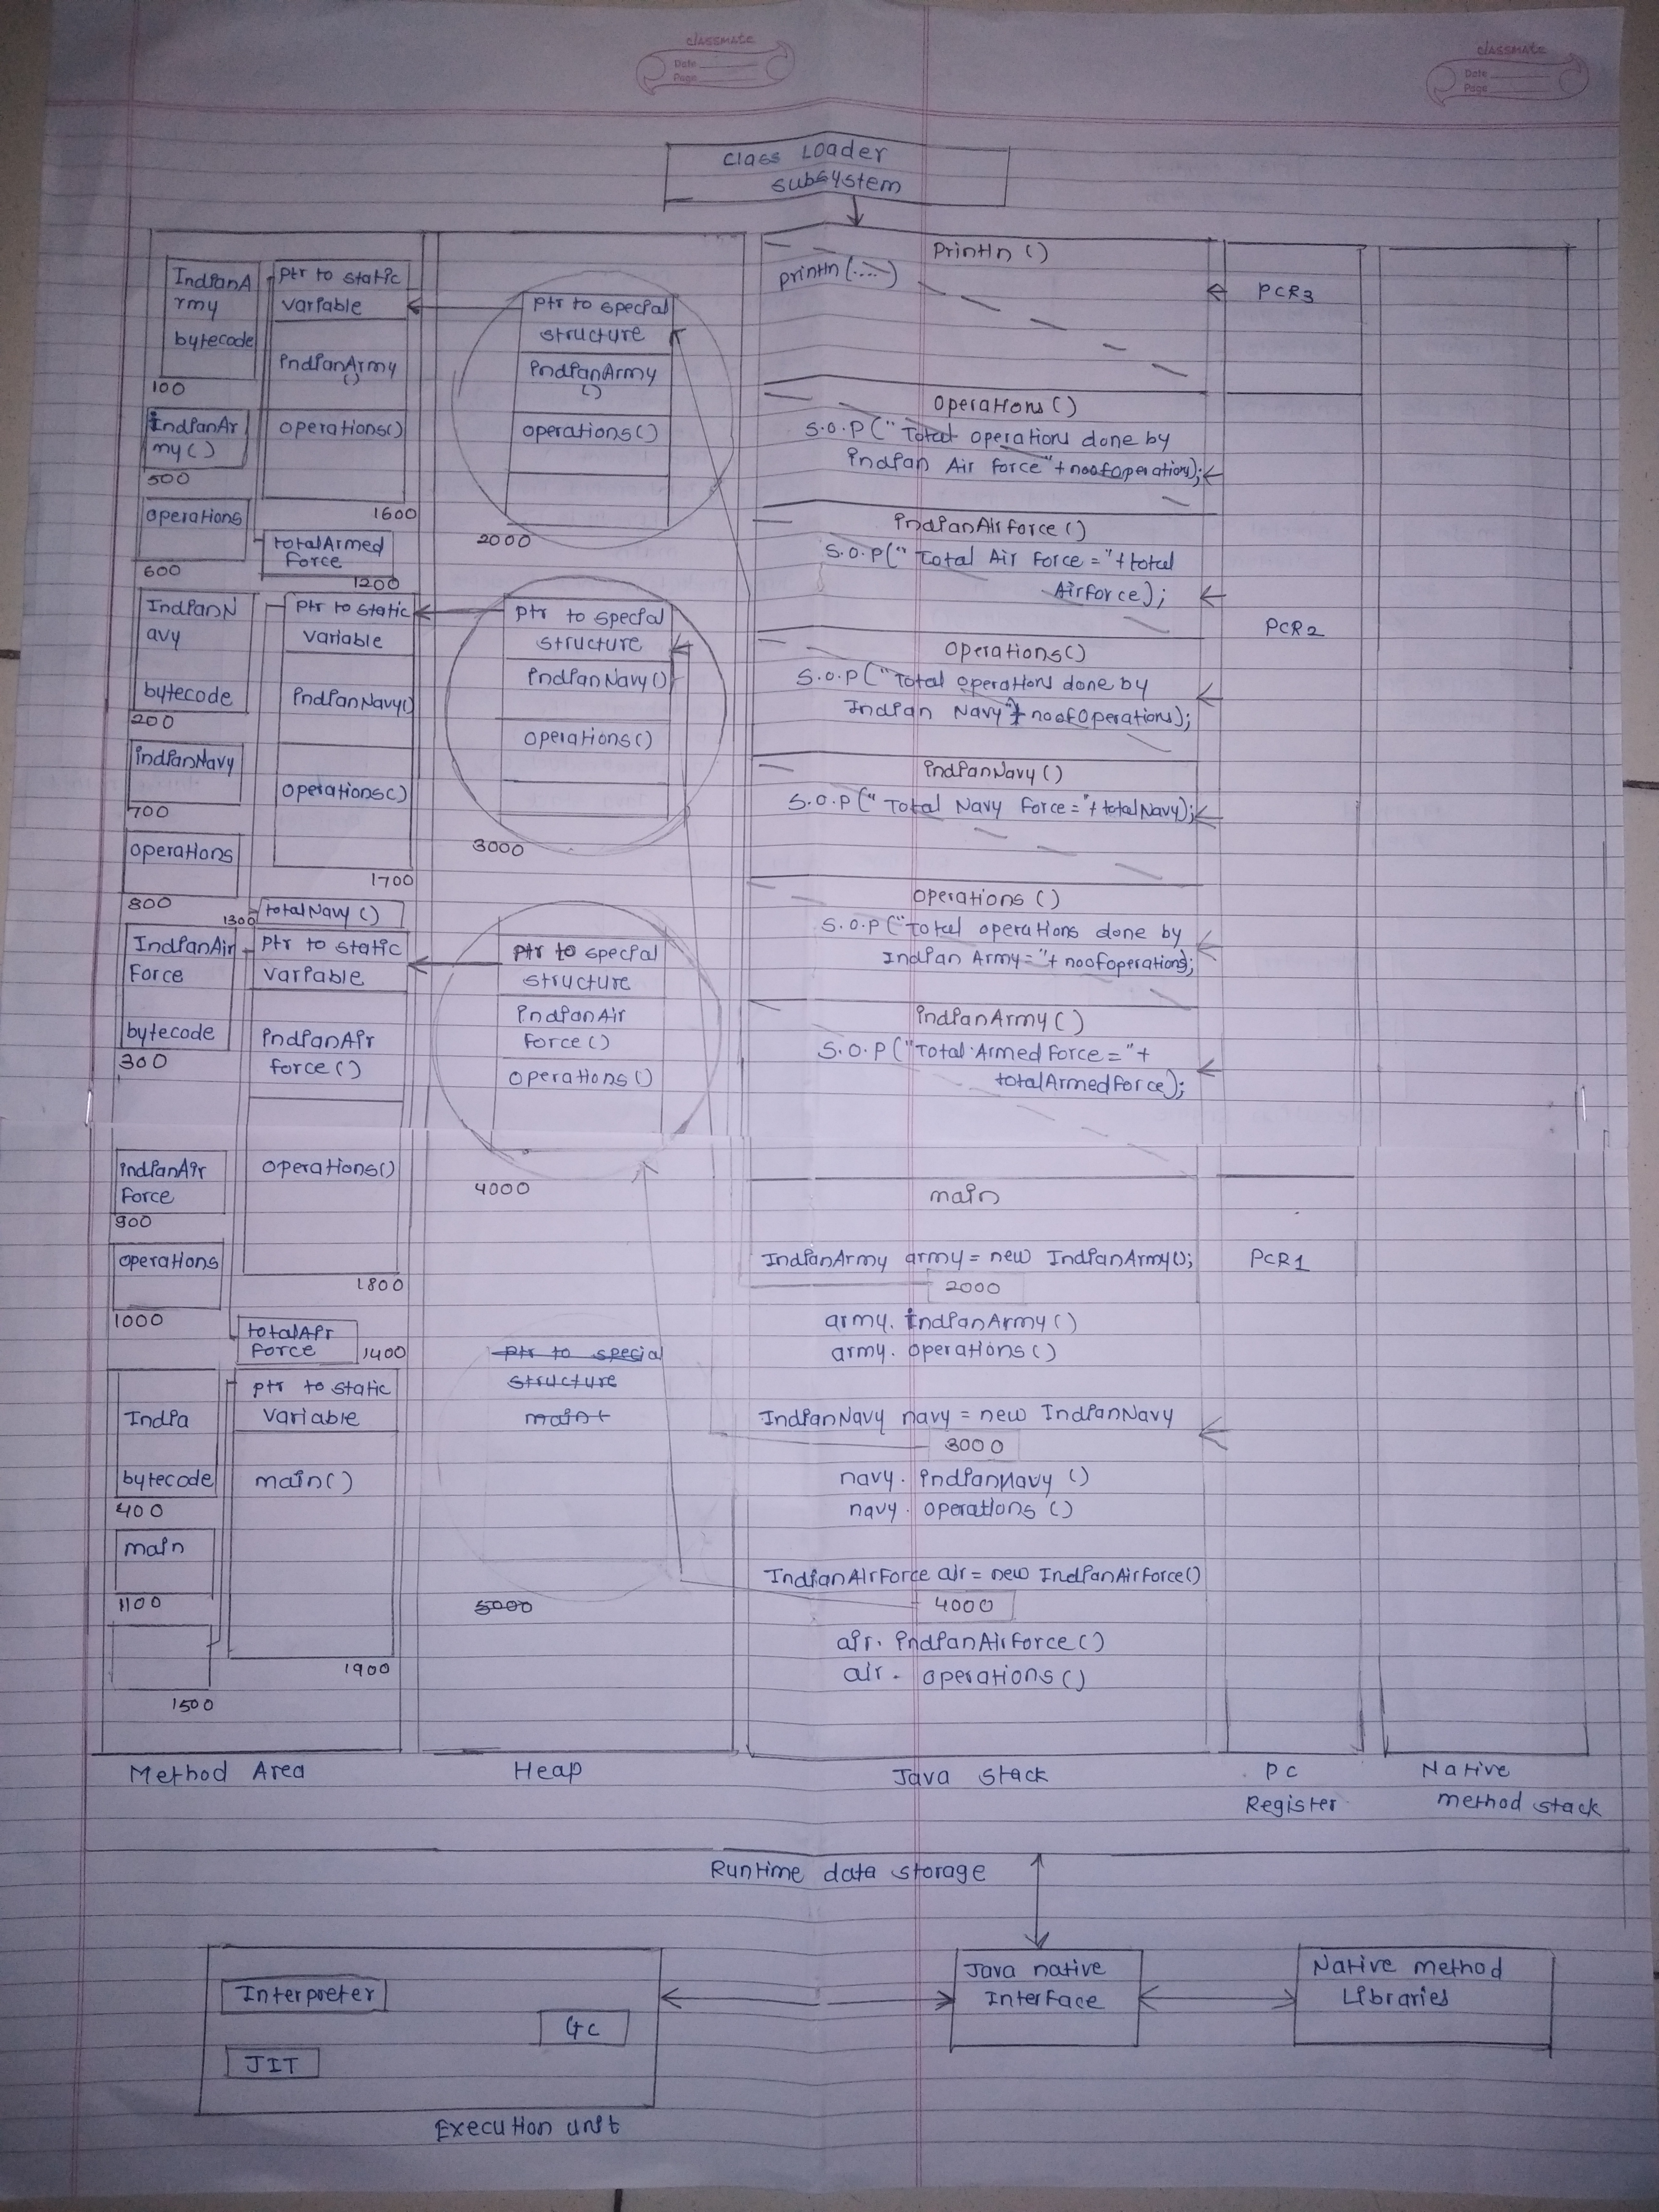 classmate
Date
Page
classmate
Date
Page
Class Loader
subsystem
IndianA
rmy
bytecode
100
IndianAr
my()
500
operations
600
IndianN
avy
bytecode
200
indianNavy
700
operations
800
IndianAir
Force
bytecode
300
indianAir
Force
900
operations
1000
India
bytecode
400
main
1100
1500
ptr to static
variable
indianArmy
()
operations()
1600
totalArmed
Force
1200
ptr to static
variable
indianNavy()
operations()
1700
1300
totalNavy ()
ptr to static
variable
indianAir
force()
operations()
1800
totalAir
Force
1400
ptr to static
variable
main()
1900
Method Area
ptr to special
structure
indianArmy
()
operations()
2000
ptr to special
structure
indianNavy()
operations()
3000
ptr to special
structure
indianAir
force()
operations()
4000
ptr to special
structure
main
5000
Heap
Println ()
println(....)
operations()
S.O.P ("Total operations done by
indian Air force"+noofoperation);
indianAirforce()
S.O.P(" Total Air Force ="+total
Airforce);
operations()
S.O.P("Total operations done by
Indian Navy"+noofoperations);
indianNavy()
S.O.P(" Total Navy Force ="+totalNavy);
operations ()
S.O.P("Total operations done by
Indian Army="+noofoperations);
indianArmy()
S.O.P("Total Armed Force ="+
totalArmedforce);
main
IndianArmy army = new IndianArmy();
2000
army. indianArmy()
army. operations()
IndianNavy navy = new IndianNavy
3000
navy. indianNavy ()
navy. operations ()
IndianAirForce air = new IndianAirForce()
4000
air. indianAirforce()
air. operations()
Java stack
PCR3
PCR2
PCR1
PC
Register
Native
method stack
Runtime data storage
Interpreter
GC
JIT
Execution unit
Java native
Interface
Native method
Libraries